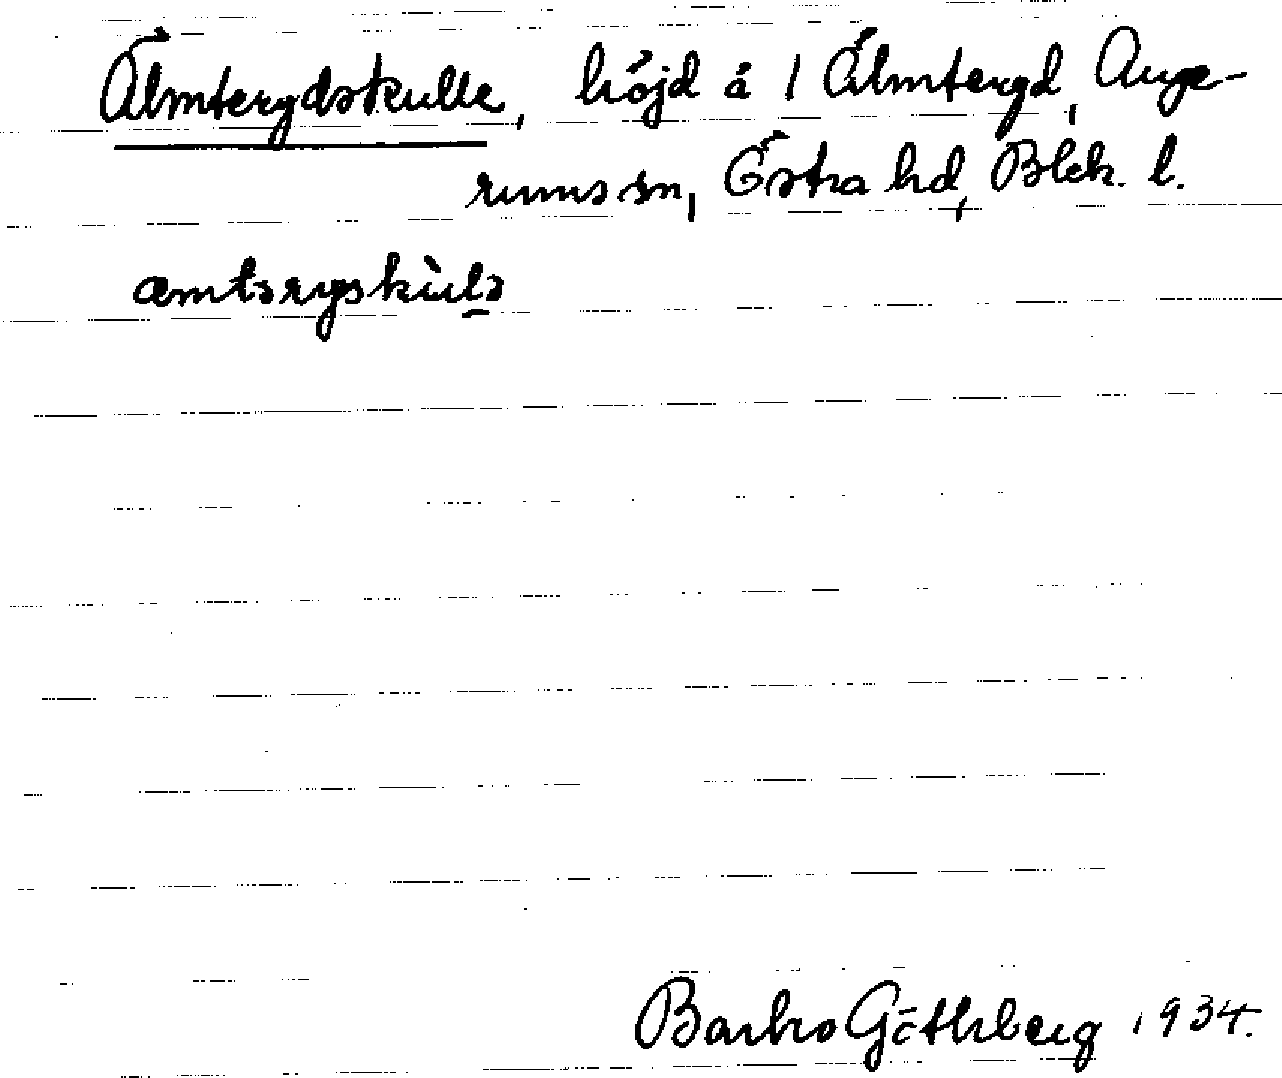 Älmterydskulle, höjd å 1 Älmteryd, Auge-
rums sn, Östra hd, Blek. l.
æmtəryskùlə
Barbro Göthberg 1934.